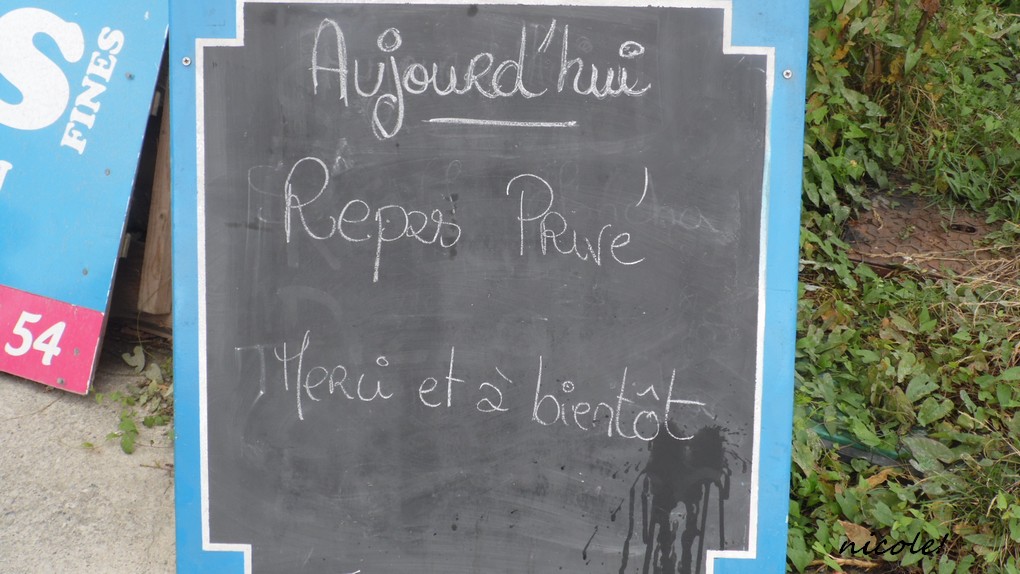 S
FINES
54
Aujourd'hui
Repas Privé
Merci et à bientôt
nicole!